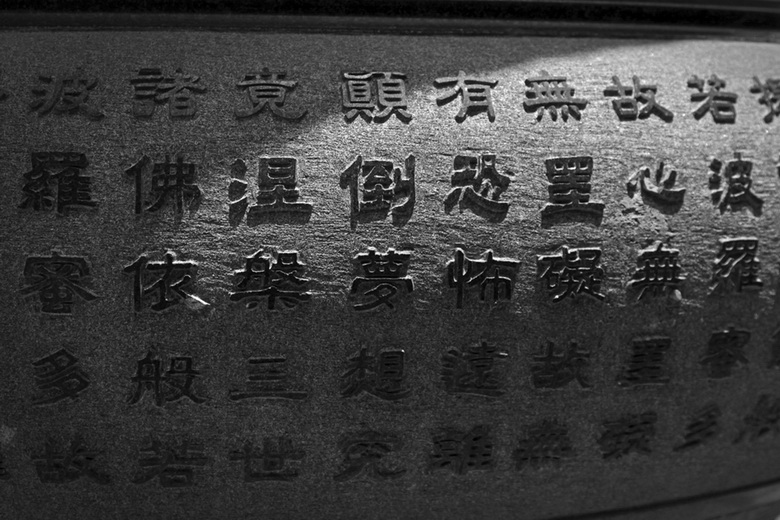 若波羅審多
故心無罣礙
無罣礙故無
有恐怖遠離
顛倒夢想究
竟涅槃三世
諸佛依般若
波羅審多故